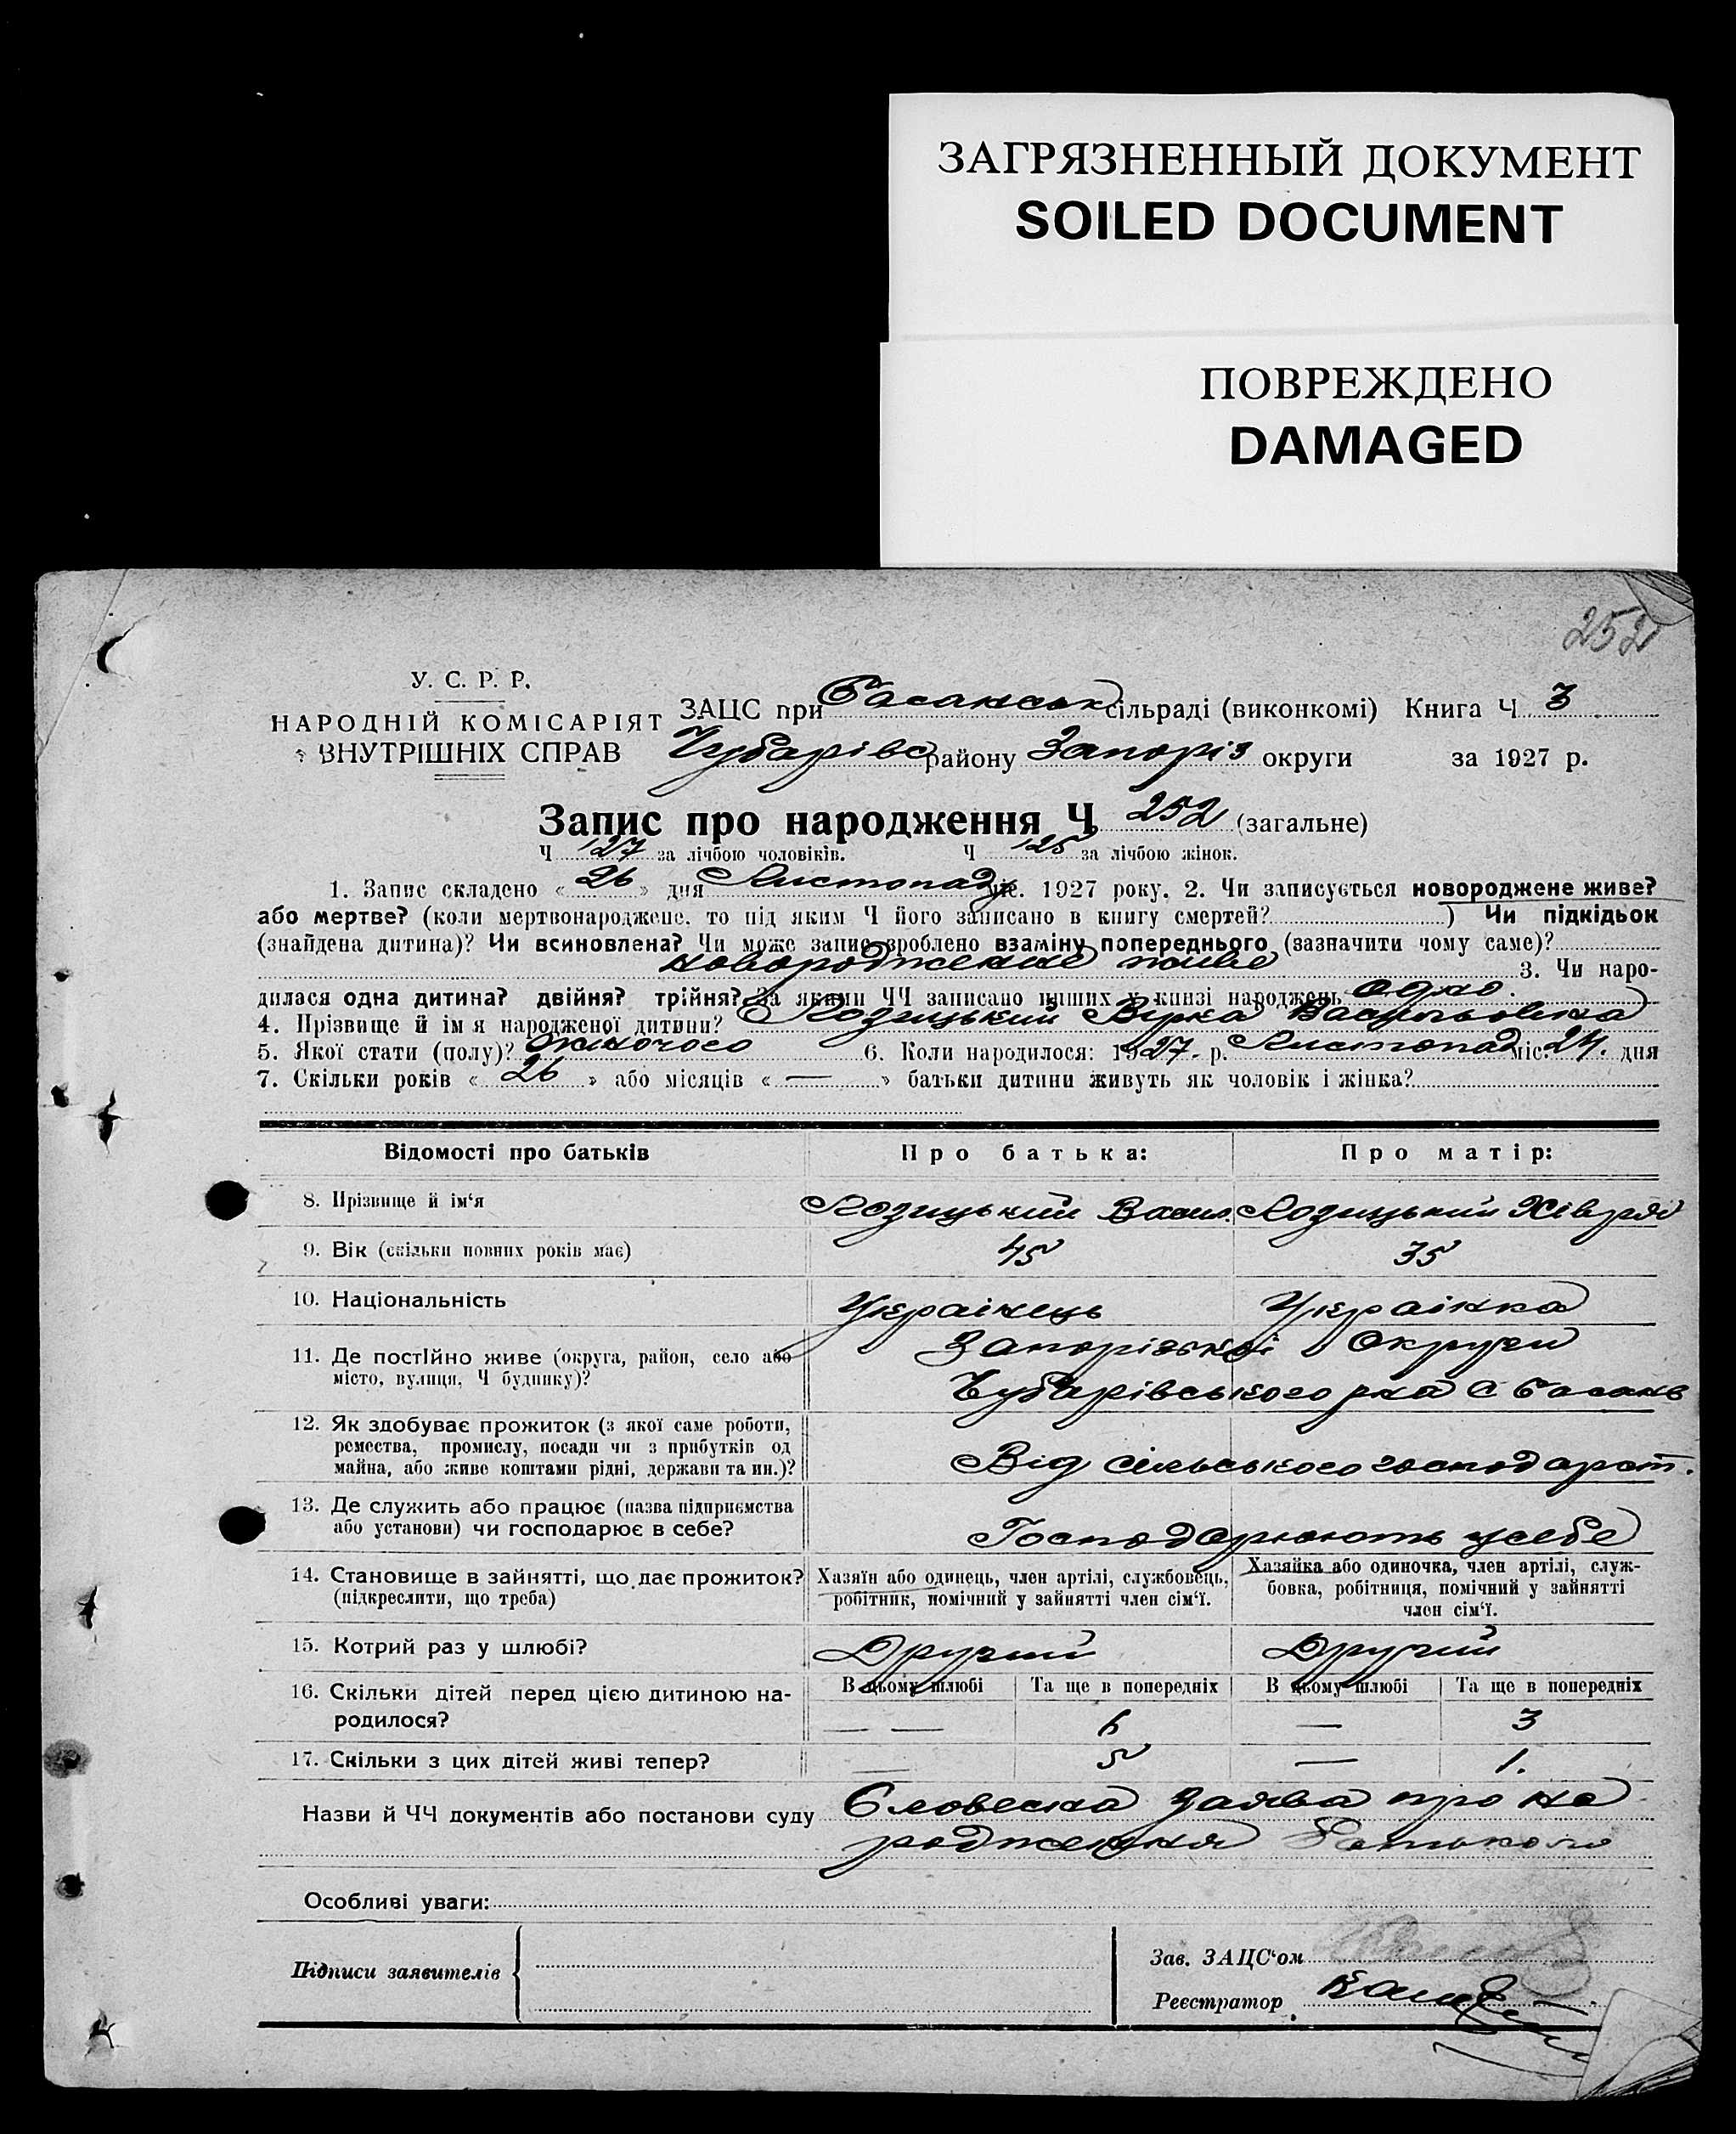 ЗАГРЯЗНЕННЫЙ ДОКУМЕНТ
SOILED DOCUMENT
ПОВРЕЖДЕНО
DAMAGED
252
У. С. Р. Р.
НАРОДНІЙ КОМІСАРІЯТ
ВНУТРІШНІХ СПРАВ
ЗАЦС при Басанськ сільраді (виконкомі) Книга Ч 3
Чубарівс району Запоріз округи за 1927 р.
Запис про народження Ч 252 (загальне)
Ч 127 за лічбою чоловіків. Ч 125 за лічбою жінок.
1. Запис складено « 26 » дня Листопад міс. 1927 року. 2. Чи записується новороджене живе?
або мертве? (коли мертвонароджене, то під яким Ч його записано в книгу смертей? ) Чи підкідьок
(знайдена дитина)? Чи всиновлена? Чи може запис зроблено взаміну попереднього (зазначити чому саме)?
новороджение живе 3. Чи наро-
дилася одна дитина? двійня? трійня? За якими ЧЧ записано инших у книзі народжень Одно.
4. Прізвище й ім я народженої дитини? Лодицький Вірка Васильовна
5. Якої стати (полу)? Жиночого 6. Коли народилося: 1927. р. Листопад міс. 24. дня
7. Скільки років « 26 » або місяців « — » батьки дитини живуть як чоловік і жінка?
Відомості про батьків Про батька: Про матір:
8. Прізвище й ім‘я Лодицький Васил. Лодицький Хівря
9. Вік (скільки повних років має) 45 35
10. Національність Українець Українка
11. Де постійно живе (округа, район, село або Запорізької Округи
місто, вулиця, Ч будинку)? Чубарівського рна С Басань
12. Як здобуває прожиток (з якої саме роботи,
ремества, промислу, посади чи з прибутків од
майна, або живе коштами рідні, держави та ин.)? Від сільського господарст.
13. Де служить або працює (назва підприємства
або установи) чи господарює в себе? Господарюють усебе
14. Становище в зайнятті, що дає прожиток? Хазяїн або одинець, член артілі, службовець, Хазяйка або одиночка, член артілі, служ-
(підкреслити, що треба) робітник, помічний у зайнятті член сім‘ї. бовка, робітниця, помічний у зайнятті
член сім‘ї.
15. Котрий раз у шлюбі? Другий Другий
16. Скільки дітей перед цією дитиною на- В цьому шлюбі Та ще в попередніх В цьому шлюбі Та ще в попередніх
родилося? — — 6 — 3
17. Скільки з цих дітей живі тепер? — 5 — 1.
Назви й ЧЧ документів або постанови суду Словесна Заява про на
родження Батьком
Особливі уваги:
Підписи заявителів
Зав. ЗАЦС‘ом
Реєстратор